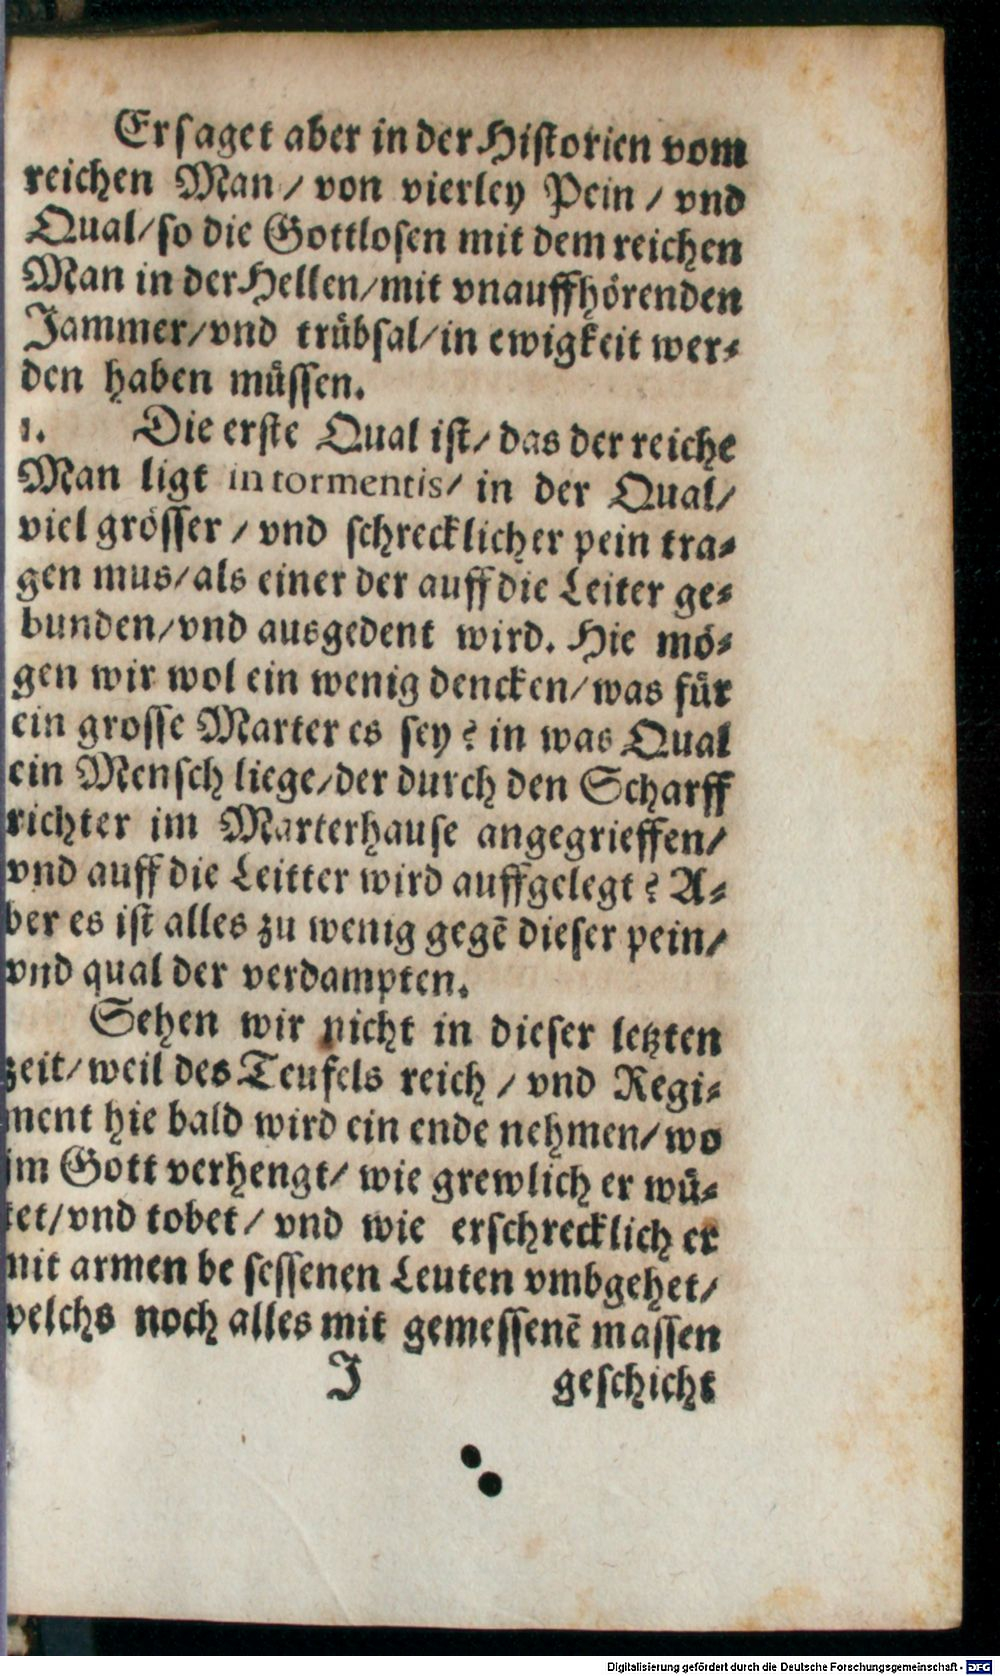 Er saget aber in der Historien vom
reichen Man / von vierley Pein / vnd
Qual / so die Gottlosen mit dem reichen
Man in der Hellen / mit vnauffhörenden
Jammer / vnd trübsal / in ewigkeit wer-
den haben müssen.
1. Die erste Qual ist / das der reiche
Man ligt in tormentis / in der Qual /
viel grösser / vnd schrecklicher pein tra-
gen mus / als einer der auff die Leiter ge-
bunden / vnd ausgedent wird. Hie mö-
gen wir wol ein wenig dencken / was für
ein grosse Marter es sey? in was Qual
ein Mensch liege / der durch den Scharff
richter im Marterhause angegrieffen /
vnd auff die Leitter wird auffgelegt? A-
ber es ist alles zu wenig gegē dieser pein /
vnd qual der verdampten.
Sehen wir nicht in dieser letzten
zeit / weil des Teufels reich / vnd Regi-
ment hie bald wird ein ende nehmen / wo
im Gott verhengt / wie grewlich er wü-
tet / vnd tobet / vnd wie erschrecklich er
mit armen be sessenen Leuten vmbgehet /
welchs noch alles mit gemessenē massen
J geschicht
Digitalisierung gefördert durch die Deutsche Forschungsgemeinschaft - DFG